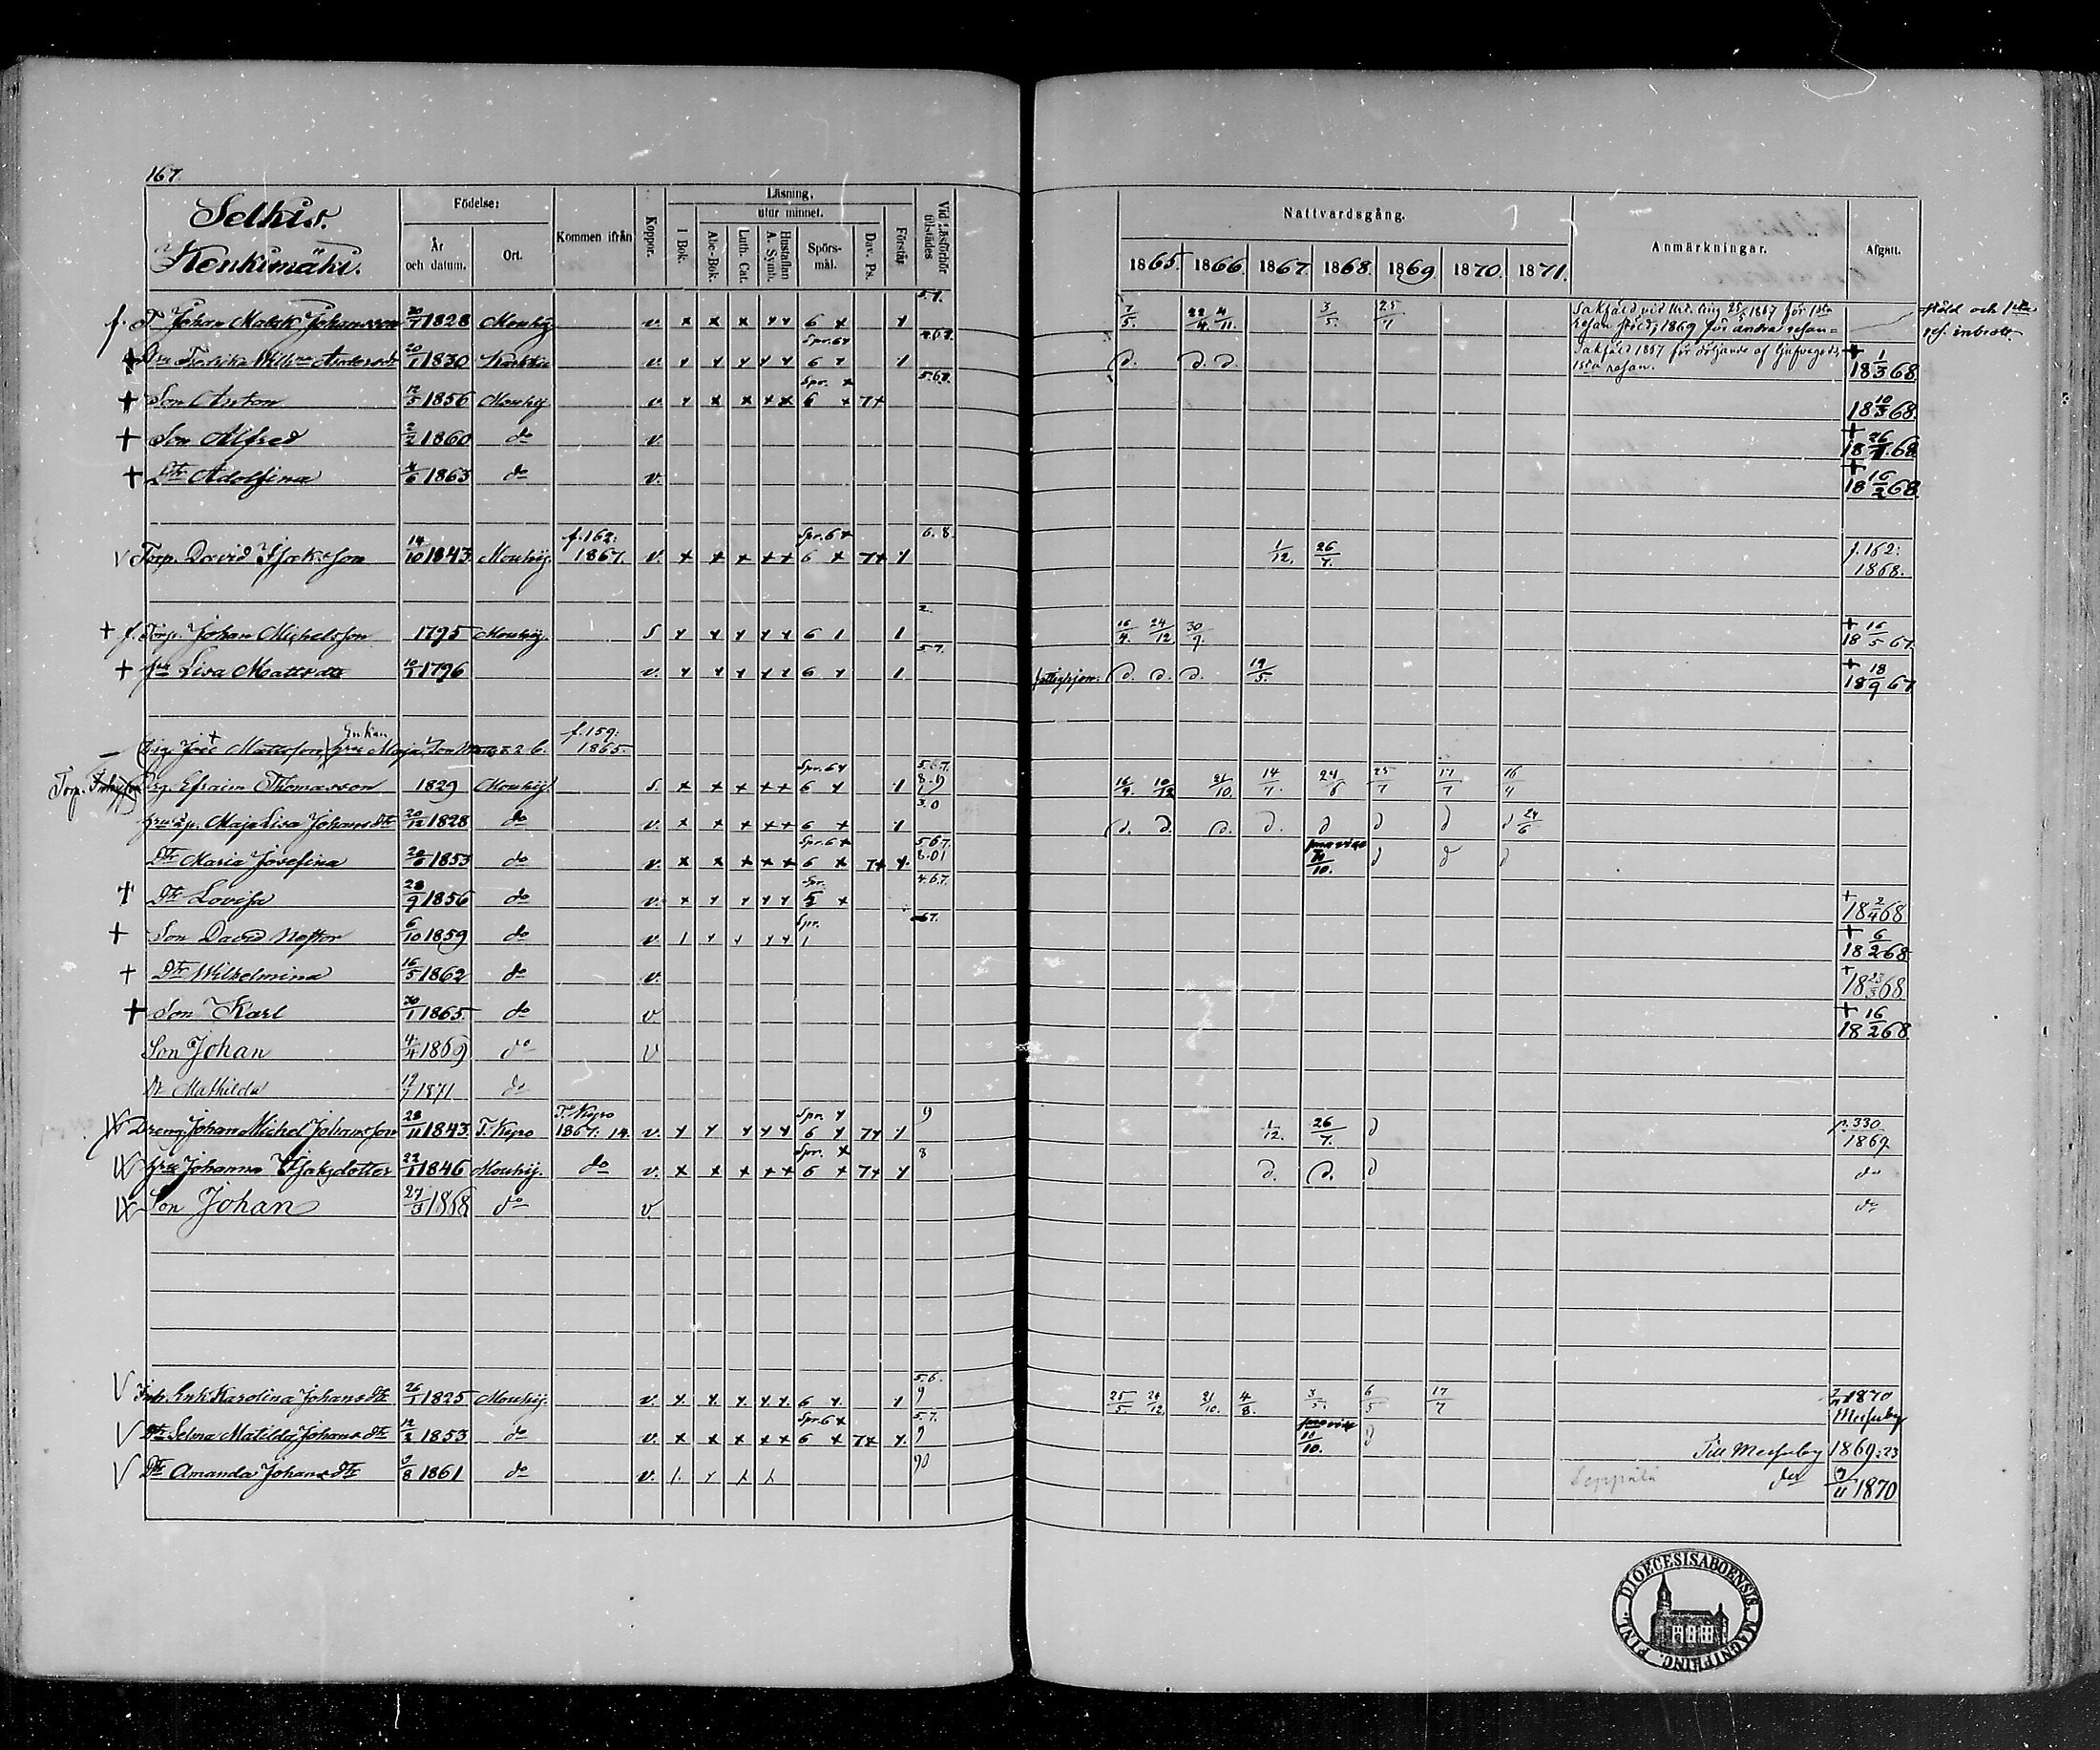 167.
Selkis.
Kenkimäki.
Födelse:
År och datum.
Ort.
Kommen ifrån
Koppor.
Läsning,
utur minnet.
I Bok.
Abc-Bok.
Luth. Cat.
Hustaflan A. Symb.
Spörs-mål.
Dav. Ps.
Förstår
Vid Läsförhör tillstädes
Nattvardsgång.
1865. 1866. 1867. 1868. 1869. 1870. 1871.
Anmärkningar.
Afgått.
f. T. Johan Matak Johansson 20/7 1828 Mouhij. v. 6 5.7. 7/5. 22/4. 4/11. 3/5. 25/7
Sakfäld vid Urd. ting 25/5 1867 för 1sta resan stöld; 1869 för andra resan stöld och 1sta res. inbrott.
Fredrika Andersdr 20/1 1830 v. Spr. 6 6 d. d. d. Sakfäld 1867 för döljande af tjufvegods, 1sta resan. + 18 1/3 68.
+ Son Anton 12/5 1856 Mouhij v. Spr. 6 7 5.67. 18 10/3 68.
+ Son Alfred 2/2 1860 do v. + 18 26/1 68
+ Dtr Adolfina 4/6 1863 do v. + 18 16/2 68
V Torp. David Isaksson 14/10 1843 Mouhij. f. 162: 1867. v. Spr. 6 6 7 6.8. 1/12. 26/7. f. 162: 1868.
+ f. Torp. Johan Michelsson 1795 Mouhij. S 6 1 1 2. 16/4. 24/12 30/9. + 18 16/5 67.
+ hu Lisa Mattsdtr 10/1 1796 v. 6 1 5.7. fattighjon. d. d. d. 19/5. + 18 18/9 67
Mattsson, Enkan hu Maja, f. 159: 1865.
Torp. Efraim Thomasson 1829 Mouhij S. Spr. 6 6 1 5.6.7. 8.9 16/9. 10/12 21/10. 14/7. 24/6 25/7 17/7 16/4
hu Maja Lisa Johansdtr 20/12 1828 do v. 6 1 3.0 d. d. d. d. d d d d 24/6
Dtr Maria Josefina 20/5 1853 do v. Spr. 6 6 7 5.6.7. 8.01 10. d d d
+ Dtr Lovisa 23/9 1856 do v. Spr. 5 4.6.7. + 18 2/4 68
+ Son David Nestor 6/10 1859 do v. 1 Spr. 1 67. + 18 6/2 68
+ Dtr Wilhelmina 16/5 1862 do v. + 18 23/3 68
+ Son Karl 30/1 1865. do v. + 18 16/2 68
Son Johan 4/4 1869 do v
Dr Mathilda 19/7 1871 do
Dreng Johan Michel Johansson 23/11 1843 T. Kyro T. Kyro 1867: 14. v. Spr. 6 7 9 1/12. 26/7. d p. 330 1869.
hu Johanna Isaksdotter 22/1 1846 Mouhij. do v. Spr. 6 7 8 d. d. d do
Son Johan 27/3 1868 do v. do
V Inh. Enk. Karolina Johansdtr 26/1 1825 Mouhij. v. 6 5.6. 9 25/5. 24/12 21/10. 4/8. 3/5. 6/5 17/7 7/11 1870 Messuby
V Dtr Selma Matilda Johansdtr 12/3 1853 do v. Spr. 6 6 7 5.7. 9 11/10. d Till Messuby 1869: 23
V Dtr Amanda Johansdtr 9/8 1861 do v. 1. 90 Seppälä do 7/11 1870
DIOECESIS ABOENSIS MAGNI PRINC. FINL.